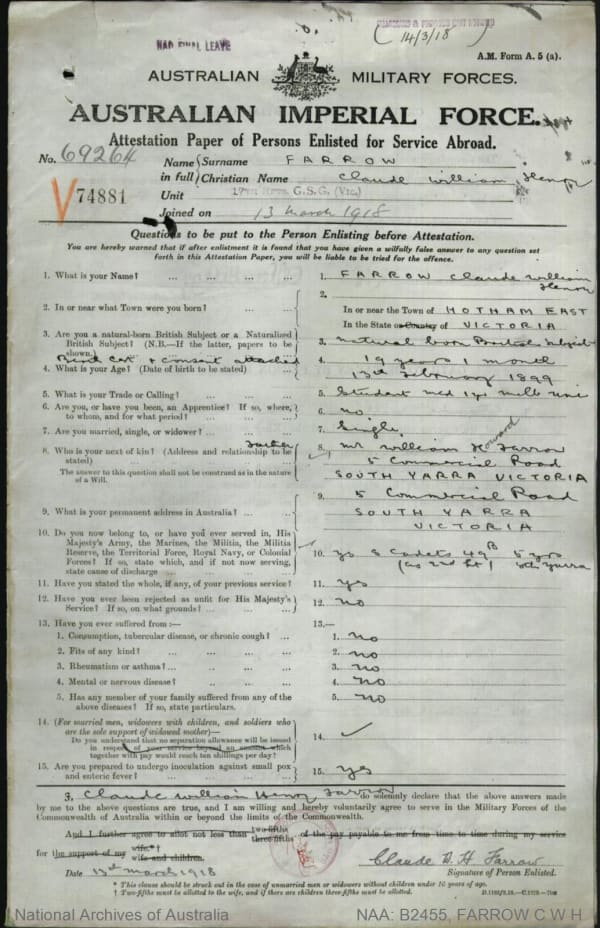 HAD FINAL LEAVE
(14/3/18)
A.M. Form A. 5 (a).
AUSTRALIAN MILITARY FORCES.
AUSTRALIAN IMPERIAL FORCE.
Attestation Paper of Persons Enlisted for Service Abroad.
No. 69264
74881
Name in full { Surname FARROW
Christian Name Claude William Henry
Unit G.S.G. (Vic.)
Joined on 13 March 1918
Questions to be put to the Person Enlisting before Attestation.
You are hereby warned that if after enlistment it is found that you have given a wilfully false answer to any question set
forth in this Attestation Paper, you will be liable to be tried for the offence.
1. What is your Name? ... ... ... ... 1. FARROW Claude William
Henry
2. In or near what Town were you born? ... ... 2. In or near the Town of HOTHAM EAST
In the State or Country of VICTORIA
3. Are you a natural-born British Subject or a Naturalized
British Subject? (N.B.—If the latter, papers to be
shown.) 3. natural born British Subject
Birth Cert + consent attached
4. What is your Age? (Date of birth to be stated) ... 4. 19 years 1 month
13th February 1899
5. What is your Trade or Calling? ... ... ... 5. Student med 1 yr melb uni
6. Are you, or have you been, an Apprentice? If so, where,
to whom, and for what period? ... ... ... 6. no
7. Are you married, single, or widower? ... ... 7. Single
Father
8. Who is your next of kin? (Address and relationship to be
stated) ... ... ... 8. Mr William Howard Farrow
5 Commercial Road
SOUTH YARRA VICTORIA
The answer to this question shall not be construed as in the nature
of a Will.
9. What is your permanent address in Australia? ... ... 9. 5 Commercial Road
SOUTH YARRA
VICTORIA
10. Do you now belong to, or have you ever served in, His
Majesty's Army, the Marines, the Militia, the Militia
Reserve, the Territorial Force, Royal Navy, or Colonial
Forces? If so, state which, and if not now serving,
state cause of discharge ... ... ... 10. yes S Cadets 49B 5 yrs
(as 2nd Lt) Sth Yarra
11. Have you stated the whole, if any, of your previous service? 11. yes
12. Have you ever been rejected as unfit for His Majesty's
Service? If so, on what grounds? ... ... ... 12. no
13. Have you ever suffered from :— 13.—
1. Consumption, tubercular disease, or chronic cough? ... 1. no
2. Fits of any kind? ... ... ... 2. no
3. Rheumatism or asthma?... ... ... 3. no
4. Mental or nervous disease? ... ... ... 4. no
5. Has any member of your family suffered from any of the
above diseases? If so, state particulars. 5. no
14. (For married men, widowers with children, and soldiers who
are the sole support of widowed mother)—
Do you understand that no separation allowance will be issued
in respect of your service beyond an amount which
together with pay would reach ten shillings per day? 14. ✓
15. Are you prepared to undergo inoculation against small pox
and enteric fever? ... ... ... 15. yes
I, Claude William Henry Farrow do solemnly declare that the above answers made
by me to the above questions are true, and I am willing and hereby voluntarily agree to serve in the Military Forces of the
Commonwealth of Australia within or beyond the limits of the Commonwealth.
And I further agree to allot not less than two-fifths three-fifths of the pay payable to me from time to time during my service
for the support of my wife*† wife and children.
Claude W. H. Farrow
Date 13th March 1918 Signature of Person Enlisted.
* This clause should be struck out in the case of unmarried men or widowers without children under 16 years of age.
† Two-fifths must be allotted to the wife, and if there are children three-fifths must be allotted.
National Archives of Australia NAA: B2455, FARROW C W H